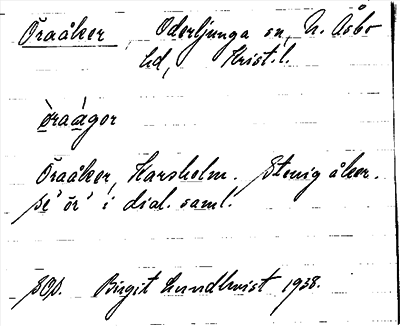 Öraåker, Oderljunga sn, N. Åsbo
hd, Krist.l.
ö̀raágor
Öraåker, Harsholm. Stenig åker.
se 'ör' i dial. saml.
Birgit Lundkvist 1938.